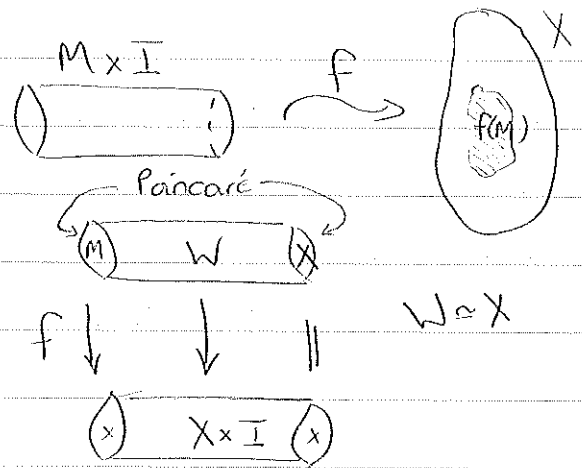 M × I
f
X
f(M)
Poincaré
M W X
f
W ≃ X
x X × I x